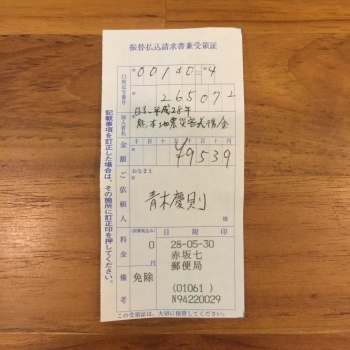 振替払込請求書兼受領証
口座記号番号
00130=4
265072
加入者名
日赤平成28年
熊本地震災害義援金
金額
千 百 十 万 千 百 十 円
¥9539
ご依頼人
おなまえ
青木慶則
様
料金
(消費税込み)
0
円
日附印
28-05-30
赤坂七
郵便局
(01061)
N94220029
備考
免除
記載事項を訂正した場合は、その箇所に訂正印を押してください。
この受領証は、大切に保管してください。